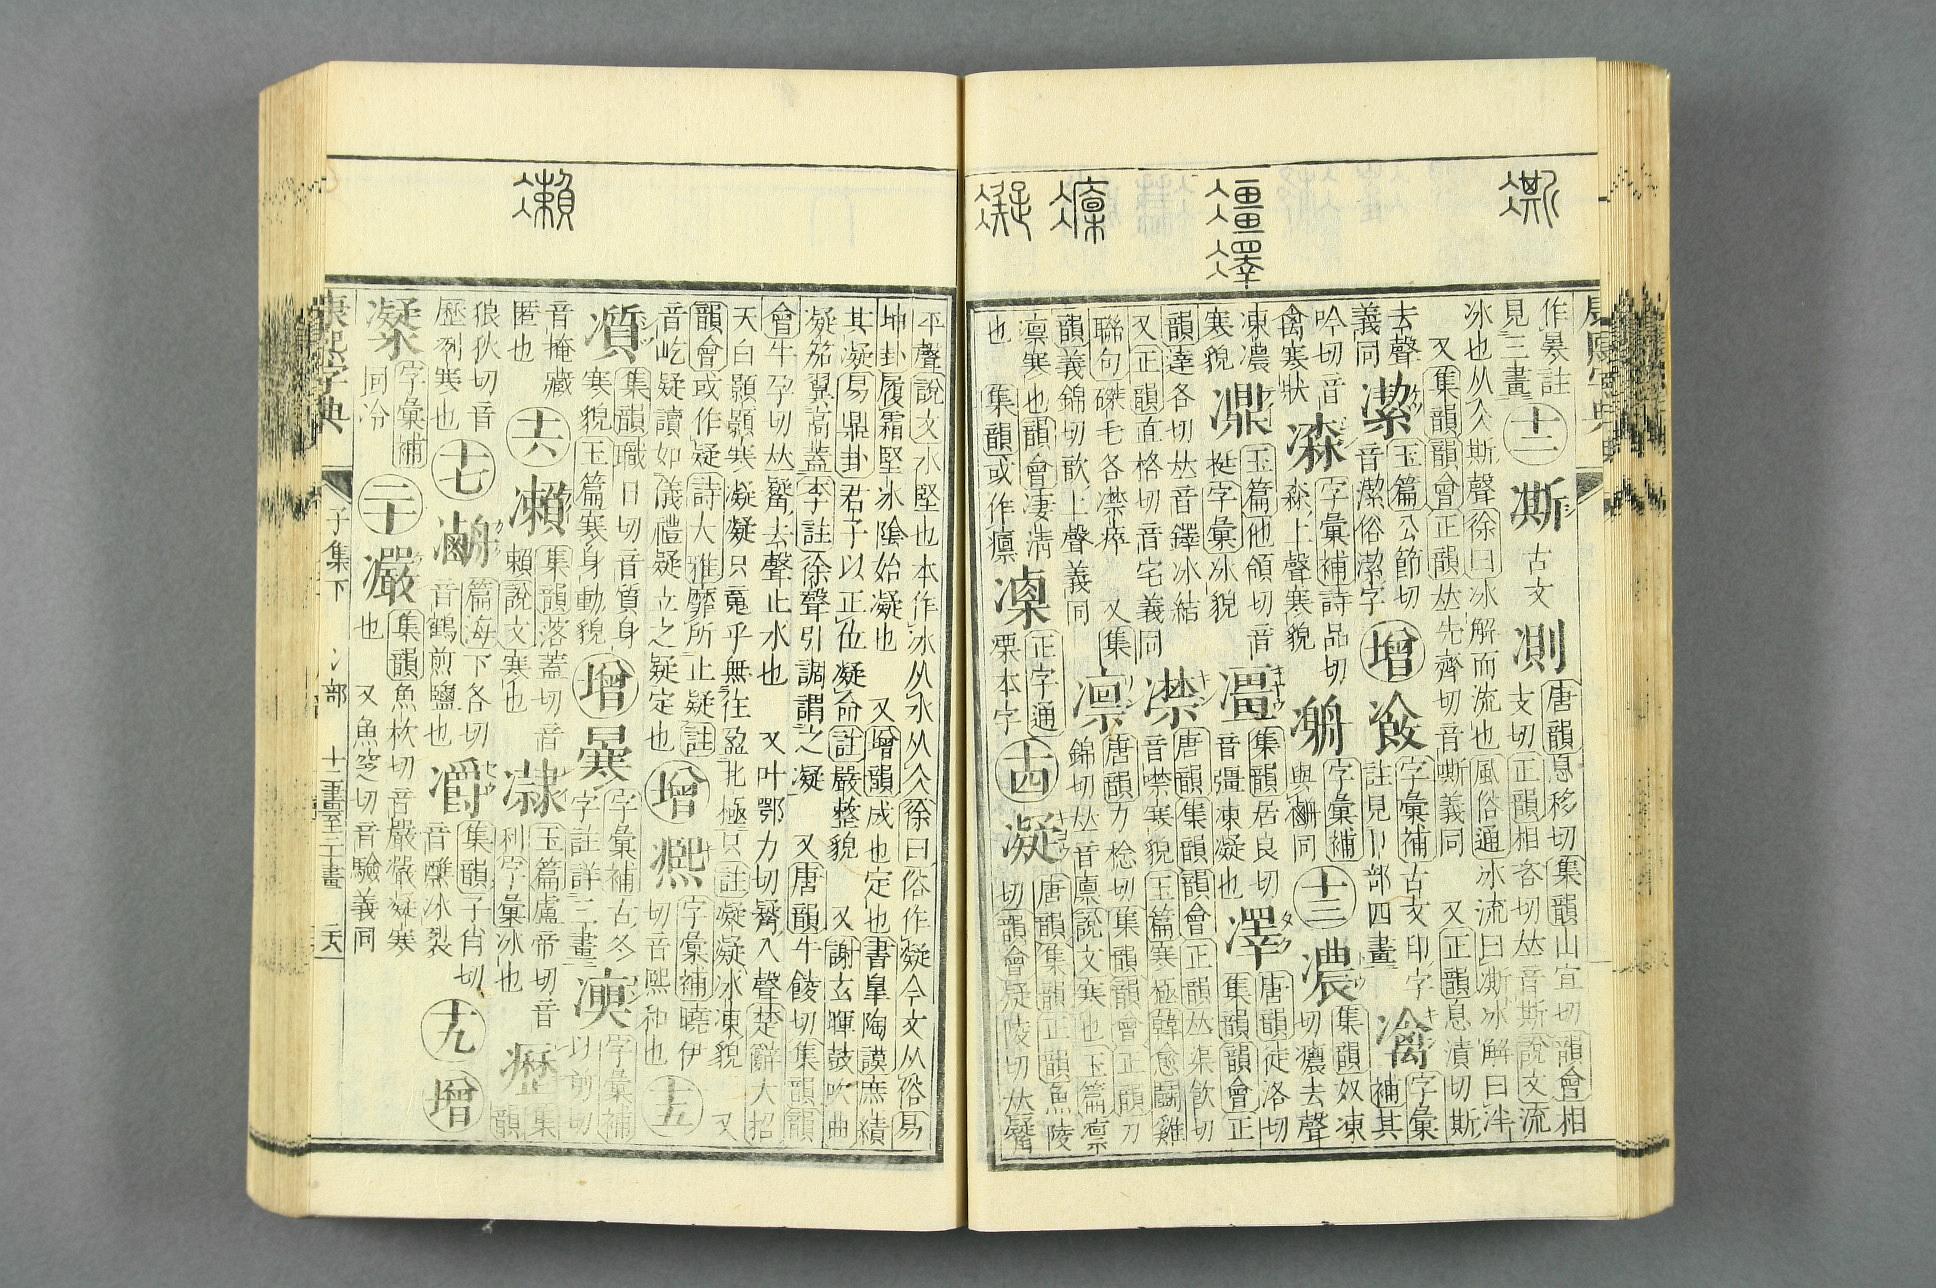 凘
㵐
澤
凛
凝
作㬥註
見三畫
十二
凘
古文
測
唐韻息移切集韻山宜切韻會相
支切正韻相咨切𠀤音斯說文流
冰也从仌斯聲徐曰冰解而流也風俗通冰流曰凘冰解曰泮
又集韻韻會正韻𠀤先齊切音嘶義同　又正韻息漬切斯
去聲
義同
玉篇公節切
音潔俗潔字
增
字彙補古文印字
註見卜部四畫
字彙補其
吟切音
禽寒狀
字彙補詩品切
森上聲寒貌
字彙補
同
十三
集韻奴凍切
癑去聲
凍濃
寒貌
玉篇他頷切音
字彙冰貌
集韻居良切
音彊凍凝也
唐韻徒洛切
集韻韻會正
韻達各切𠀤音鐸冰結
又正韻直格切音宅義同
凚
唐韻集韻韻會正韻𠀤渠飲切
音噤寒貌玉篇寒極韓愈鬭雞
聯句磔毛各凚瘁　又集
韻義錦切歆上聲義同
凛
唐韻力稔切集韻韻會正韻力
錦切𠀤音廩說文寒也玉篇凛
凛寒也韻會凄清
也　集韻或作癛
正字通
凓本字
十四
凝
唐韻集韻正韻魚陵
切韻會疑陵切𠀤嶷
瀨
平聲說文水堅也本作冰从水从仌徐曰俗作凝今文从俗易
坤卦履霜堅冰陰始凝也　又增韻成也定也書皐陶謨庶績
其凝易鼎卦君子以正位凝命註嚴整貌　又謝玄暉鼓吹曲
凝笳翼高蓋李註徐聲引調謂之凝　又唐韻牛餕切集韻韻
會牛孕切𠀤嶷去聲止水也　又叶鄂力切嶷入聲楚辭大招
天白顥顥寒凝凝只䰟乎無往盈北極只註凝凝冰凍貌　又
韻會或作疑詩大雅靡所止疑註
音屹疑讀如儀禮疑立之疑定也
增
字彙補曉伊
切音熙和也
十五
集韻職日切音質身
寒貌玉篇寒身動貌
增
字彙補古冬
字註詳三畫
字彙補
以剪切
音掩藏
匿也
十六
集韻落蓋切音
賴說文寒也
玉篇盧帝切音
利字彙冰也
集
韻
狼狄切音
歷冽寒也
十七
篇海下各切
音鶴煎鹽也
集韻子肖切
音醮冰裂
十九
增
字彙補
同冷
二十
集韻魚杴切音嚴嚴凝寒
也　又魚窆切音驗義同
康熙字典
子集下　冫部　十二畫至二十畫　二六